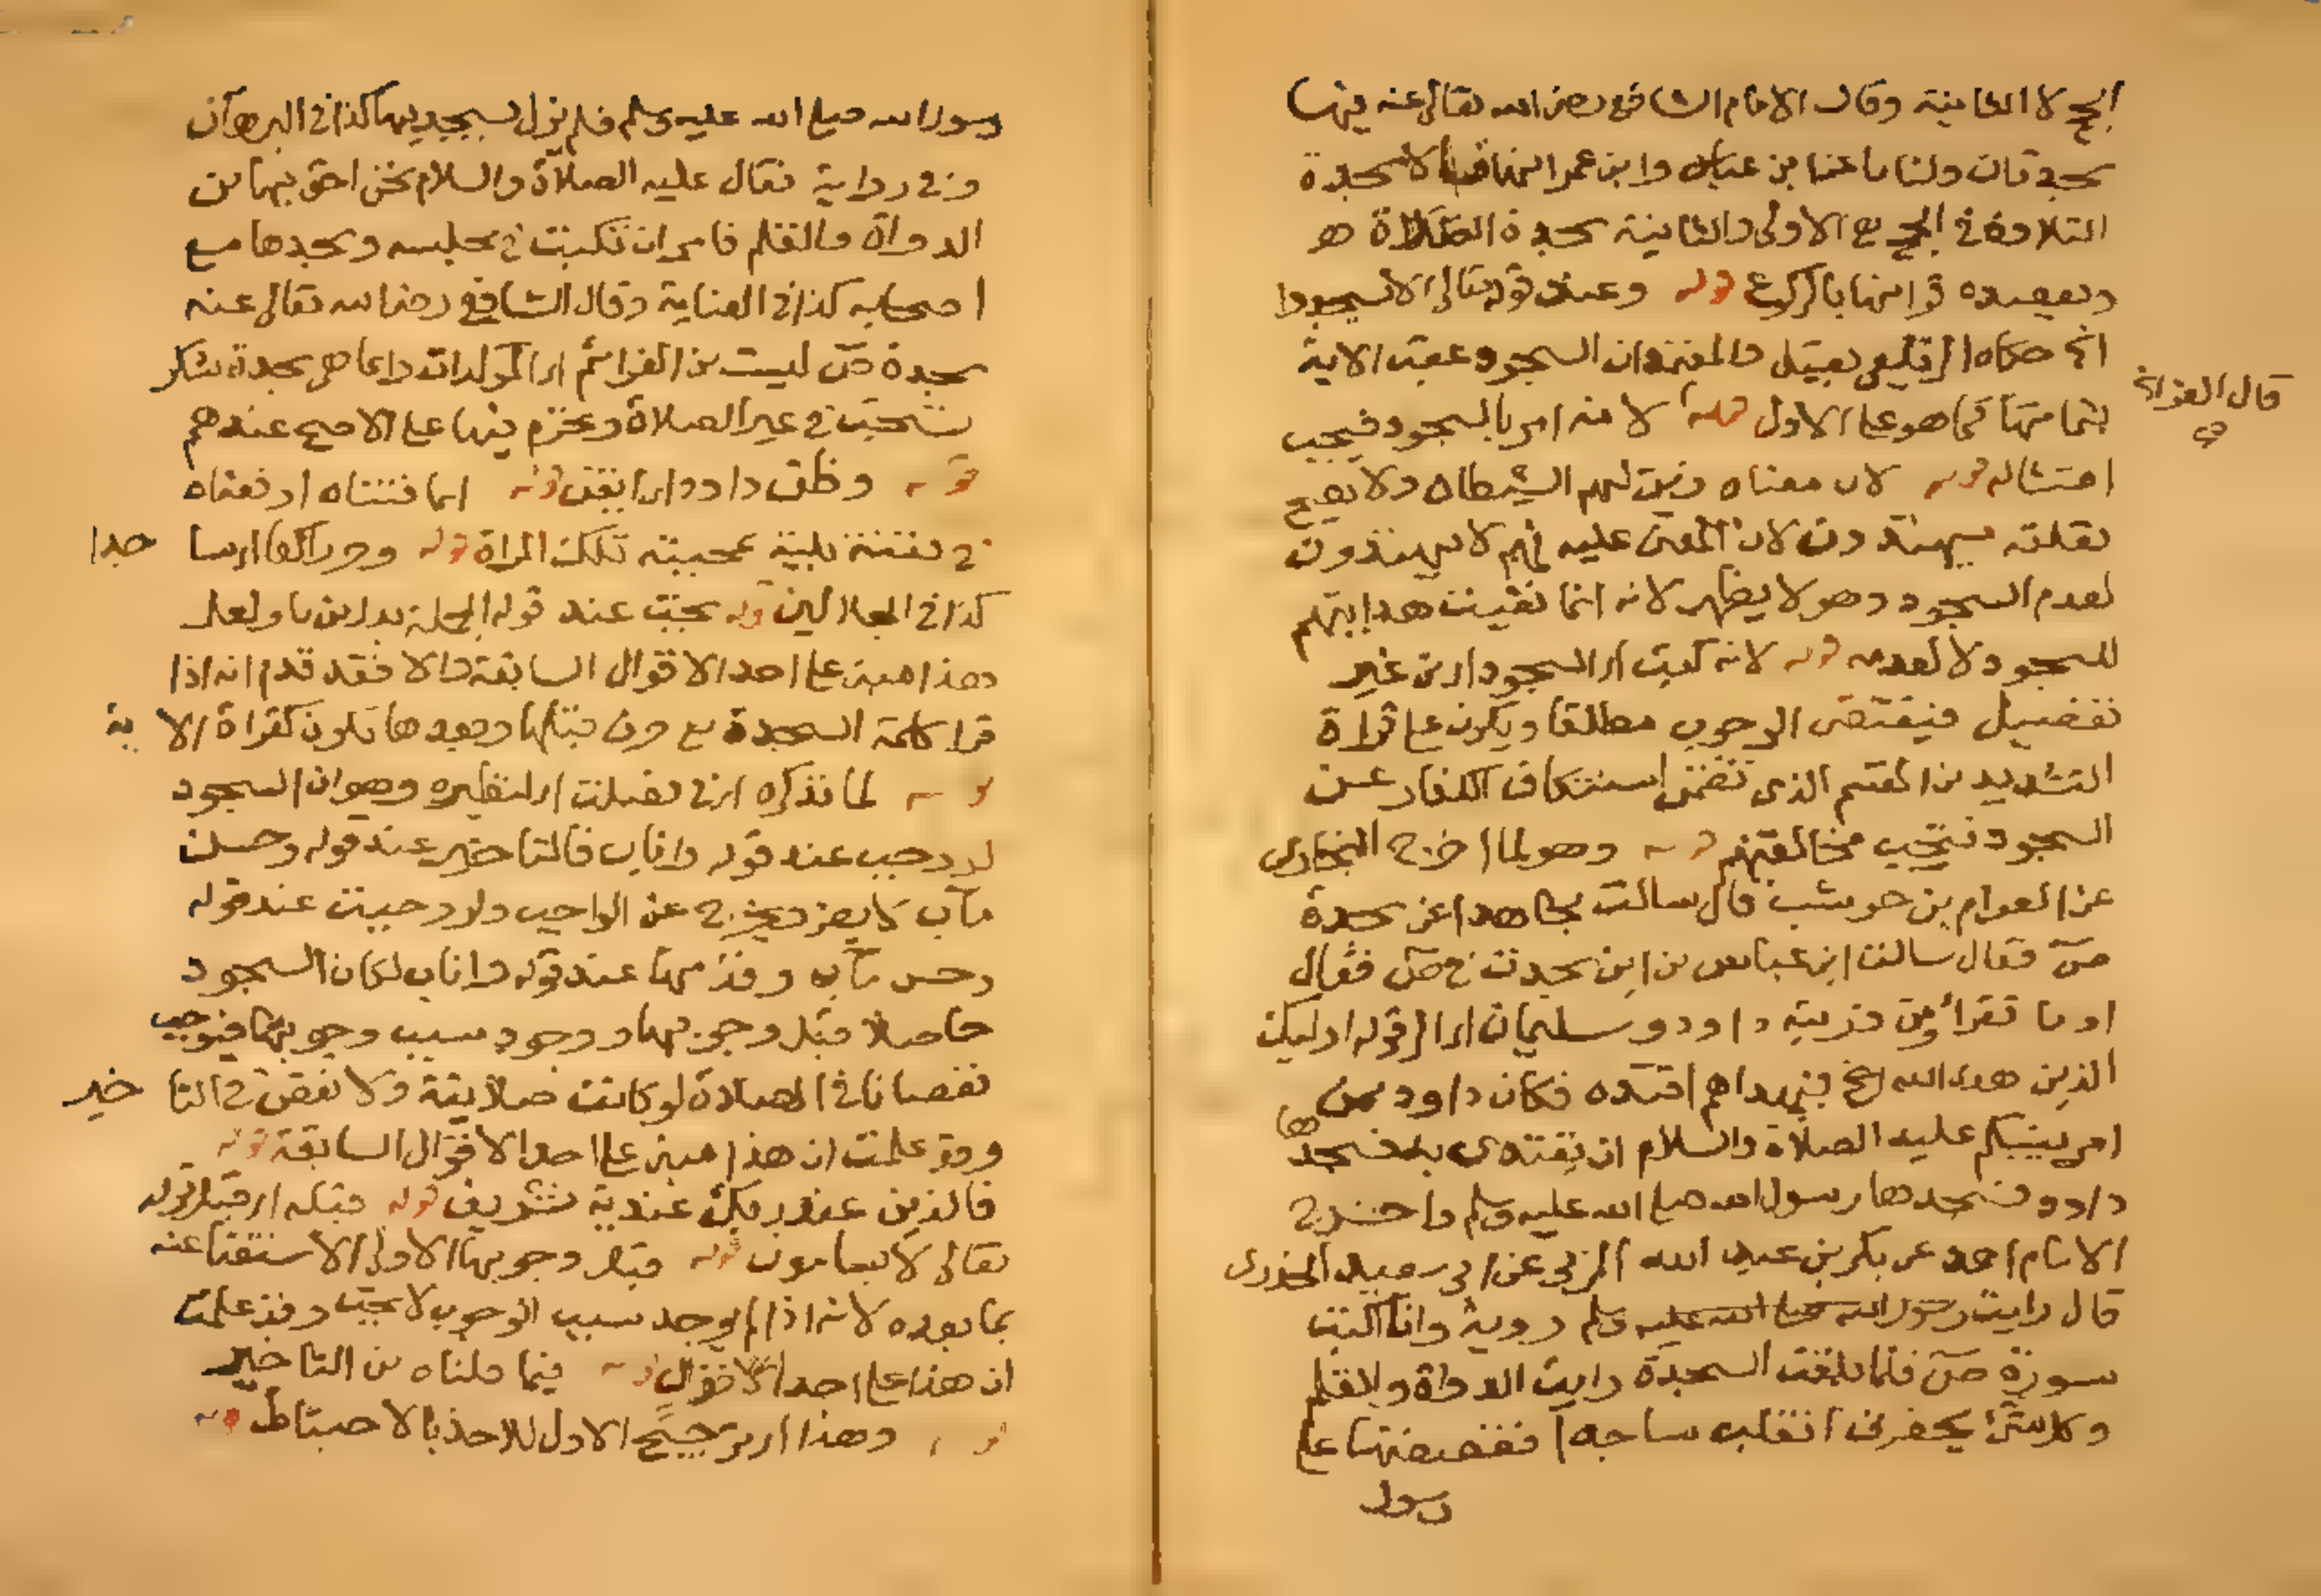 الحج لا الثانية وقال الامام الشافعي رضي الله تعالى عنه فيها
سجدتان ولنا ما عن ابن عباس وابن عمر انهما قالا سجدة
التلاوة في الحج هي الاولى والثانية سجدة الصلاة هو
ويعضده قرانها بالركوع قوله وعند قوله تعالى الا يسجدوا
الخ حكاه الزيلعي بقيل والمعتمد ان السجود عقب الاية
قال الفراء
بتمامها كما هو على الاول قوله لانه امر بالسجود فيجب
امتثاله قوله لان معناه وزين لهم الشيطان ولا يصح
تعلقه بيهتدون لان المعنى عليه فهم لا يهتدون
لعدم السجود وهو لا يظهر لانه انما نفيت هدايتهم
للسجود لا لعدمه قوله لانه كتب اي السجود اي من غير
تفضيل فيقتضي الوجوب مطلقا ويكون على قراة
التشديد من القسم الذي تضمن استنكاف الكفار عن
السجود فتجب مخالفتهم قوله وهو لما اخرج البخاري
عن العوام بن حوشب قال سالت مجاهدا عن سجدة
ص فقال سالت ابن عباس من اين سجدت في ص فقال
او ما تقرأ ومن ذريته داود وسليمان اي الى قوله اوليك
الذين هدى الله الخ فبهداهم اقتده فكان داود ممن
امر نبيكم عليه الصلاة والسلام ان يقتدي به فسجدها
داود فسجدها رسول الله صلى الله عليه وسلم واخرج
الامام احمد عن بكر بن عبد الله المزني عن ابي سعيد الخدري
قال رايت رسول الله صلى الله عليه وسلم روية وانا اكتب
سورة ص فلما بلغت السجدة رايت الدواة والقلم
وكل شئ يحضرني انقلب ساجدا فقصصتها على
رسول
رسول الله صلى الله عليه وسلم فلم يزل يسجد بها كذا في البرهان
وفي رواية فقال عليه الصلاة والسلام نحن احق بها من
الدواة والقلم فامر ان تكتب في مجلسه وسجدها مع
اصحابه كذا في العناية وقال الشافعي رضي الله تعالى عنه
سجدة ص ليست من العزائم اي المولدات وانما هي سجدة شكر
تستحب في غير الصلاة وتحرم فيها على الاصح عندهم
قوله وظن داود اي ايقن قوله انما فتناه اوقعناه
في فتنة بلية بمحبته تلك المراة قوله وخر راكعا اي ساجدا
كذا في الجلالين قوله تجب عند قوله الجملة بدل من ما ولعل
هذا مبني على احد الاقوال السابقة والا فقد قدم انه اذا
قرا كلمة السجدة مع حرف قبلها وبعدها تكون كقراة الاية
قوله لما نذكره اي في فصلت اي لنظيره وهو ان السجود
لو وجب عند قوله واناب فالتاخير عند قوله وحسن
مآب لا يضر ويخرج عن الواجب ولو وجبت عند قوله
وحسن مآب وقدمها عند قوله واناب لكان السجود
حاصلا قبل وجوبها ووجود سبب وجوبها فيوجب
نقصانا في الصلاة لو كانت صلاتية ولا نقص في التاخير
وقد علمت ان هذا مبني على احد الاقوال السابقة قوله
فالذين عند ربك عندية تشريف قوله قبله اي قبل قوله
تعالى لا يسأمون قوله قبل وجوبها الاولى الاستغنا عنه
بما بعده لانه اذا لم يوجد سبب الوجوب لا تجب وقد علمت
ان هذا على احد الاقوال قوله فيما قلناه من التاخير
قوله وهذا اي ترجيح الاول للاخذ بالاحتياط قوله